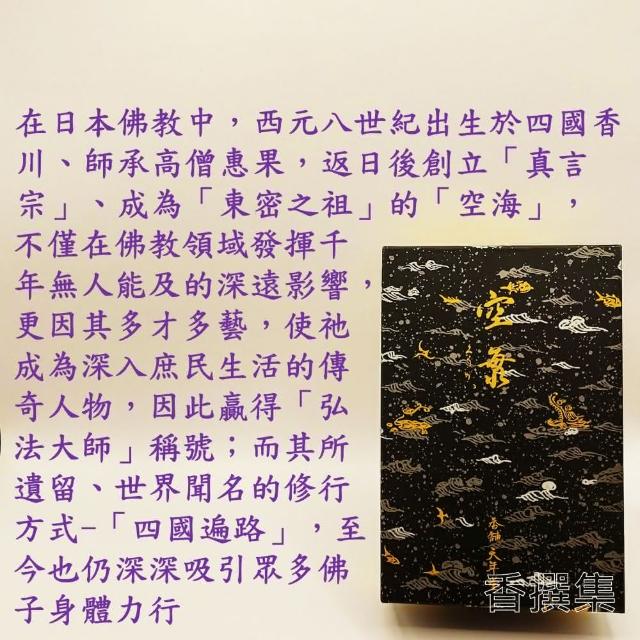 在日本佛教中，西元八世紀出生於四國香
川、師承高僧惠果，返日後創立「真言
宗」、成為「東密之祖」的「空海」，
不僅在佛教領域發揮千
年無人能及的深遠影響，
更因其多才多藝，使祂
成為深入庶民生活的傳
奇人物，因此贏得「弘
法大師」稱號；而其所
遺留、世界聞名的修行
方式–「四國遍路」，至
今也仍深深吸引眾多佛
子身體力行
空
香舗 天年
香撰集